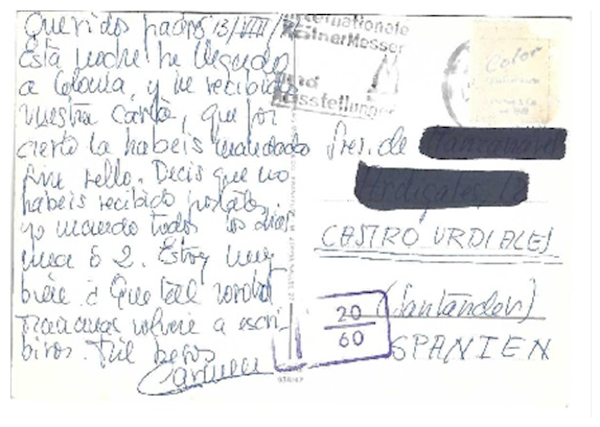 Queridos padres 13/VIII/
Esta noche he llegado
a Colonia, y he recibido
vuestra carta, que por
cierto la habeis mandado
sin sello. Decis que no
habeis recibido postales
yo mando todos los dias
una ó 2. Estoy muy
bien. ¿ Que tal
mañana volvere a escri-
biros. Mil besos
Carmen
Internationale
Kölner Messen
und
Ausstellungen
Color
Sres. de
CASTRO URDIALES
(Santander)
SPANIEN
20
60